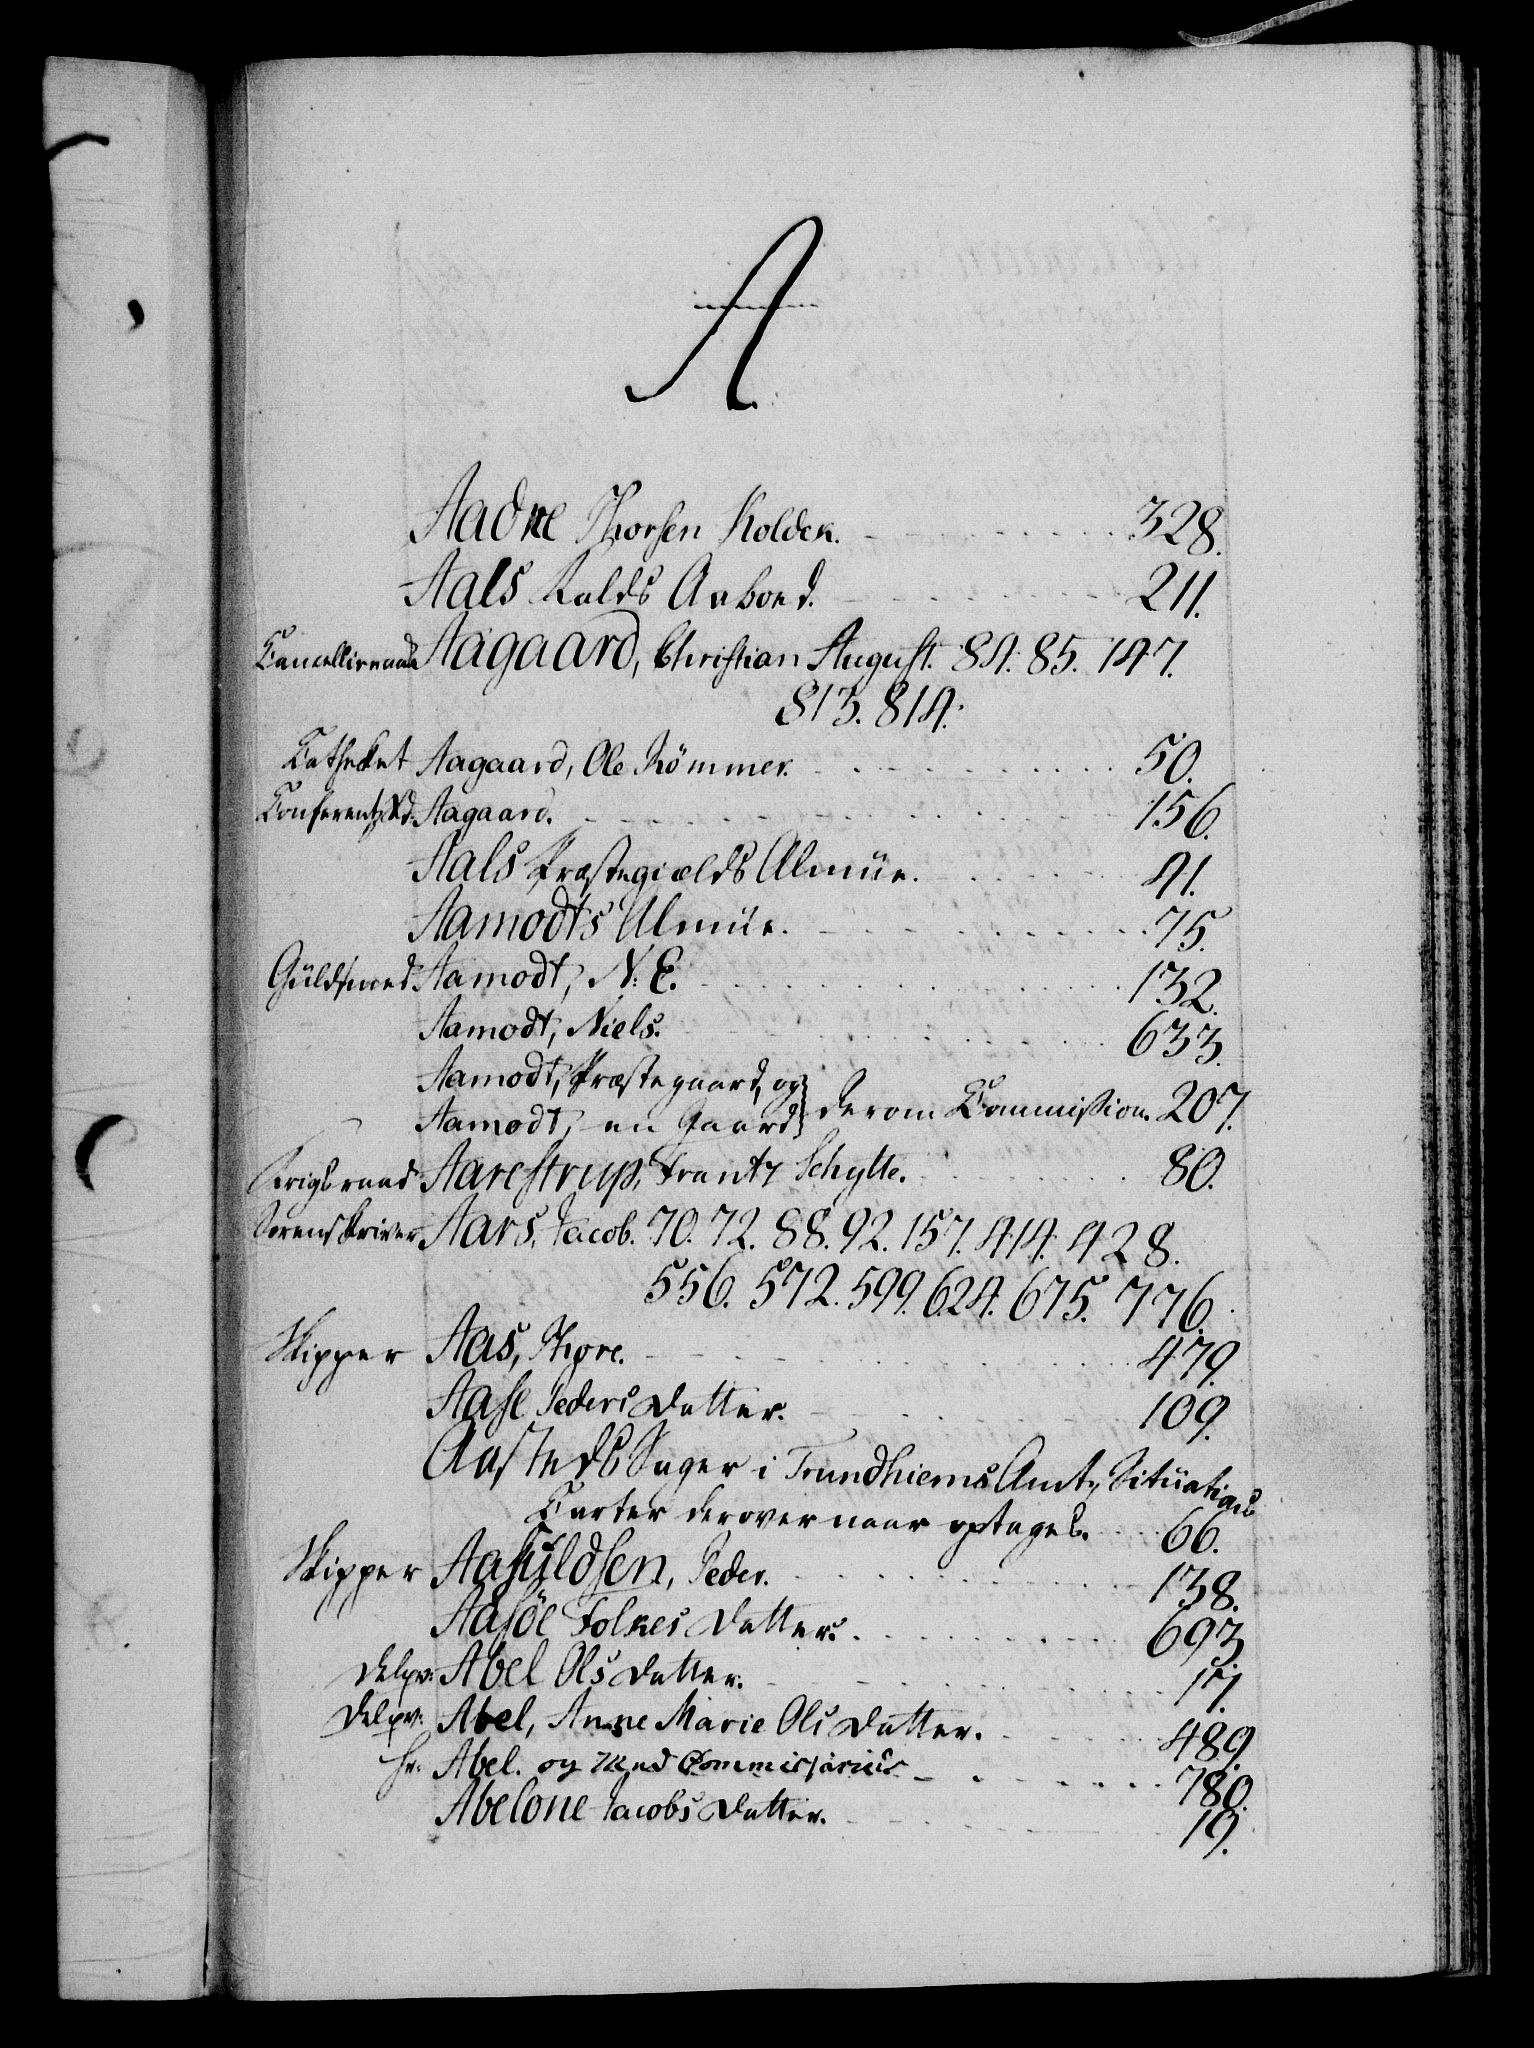 A.
Aadne Thorsen Kolden. 328.
Aals Kalds Anbord. 211.
Cancelliraad Aagaard, Christian August. 84. 85. 147.
813. 814.
Cathechet Aagaard, Ole Römmer. 50.
Conferentz Rd. Aagaard. 156.
Aals Præstegields Almüe. 41.
Aamodts Almüe. 75.
Güldsmed Aamodt, N: E. 132.
Aamodt, Niels. 633.
Aamodt, Præstegaard, og
Aamodt, en Gaard} derom Commission. 207.
Krigsraad Aarestrup, Frantz Schytte. 80.
Sorenskriver Aars, Jacob. 70. 72. 88. 92. 157. 414. 428.
556. 572. 599. 624. 675. 776.
Skipper Aas, Thore. 479.
Aase Peders Datter. 109.
Aasteds Sager i Trundhiems Amt, Sitüations
Carter derover naar optages. 66.
Skipper Aasüldsen, Peder. 138.
Aasöe Folkes Datter. 693.
Abel Ols Datter. 17.
Abel, Anne Marie Ols Datter. 489.
Hr. Abel. og Med Commissariüs 780.
Abelone Jacobs Datter. 19.